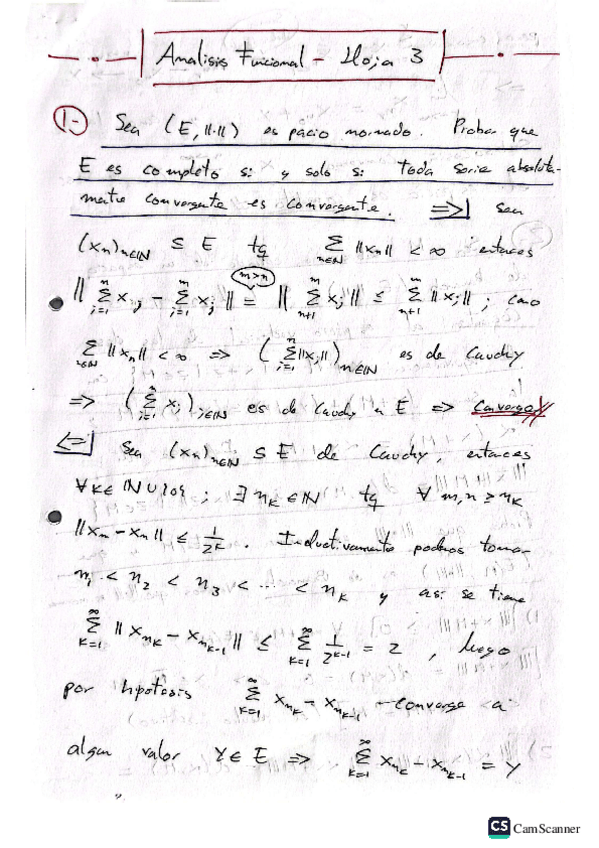 Analisis Funcional - Hoja 3
1- Sea (E, ||·||) espacio normado. Probar que
E es completo si y solo si toda serie absoluta-
mente convergente es convergente. =>| Sea
(xn)n∈ℕ ⊆ E tq Σn∈ℕ ||xn|| < ∞ entonces
|| Σ_{j=1}^{n} xj - Σ_{j=1}^{m} xj || = (m>n) || Σ_{n+1}^{m} xj || ≤ Σ_{n+1}^{m} ||xj|| ; como
Σn∈ℕ ||xn|| < ∞ => ( Σ_{j=1}^{n} ||xj|| )n∈ℕ es de Cauchy
=> ( Σ_{j=1}^{n} xj )j∈ℕ es de Cauchy en E => Converge //
<=| Sea (xn)n∈ℕ ⊆ E de Cauchy, entonces
∀ k∈ℕ∪{0} ; ∃ nk ∈ ℕ tq ∀ m,n ≥ nk
||xm - xn|| ≤ 1/2^k . Inductivamente podemos tomar
n1 < n2 < n3 < ... < nk y asi se tiene
Σ_{k=1}^{∞} || x_{nk} - x_{nk-1} || ≤ Σ_{k=1}^{∞} 1/2^{k-1} = 2 , luego
por hipotesis Σ_{k=1}^{∞} x_{nk} - x_{nk-1} converge a
algun valor Y ∈ E => Σ_{k=1}^{∞} x_{nk} - x_{nk-1} = Y
CS CamScanner